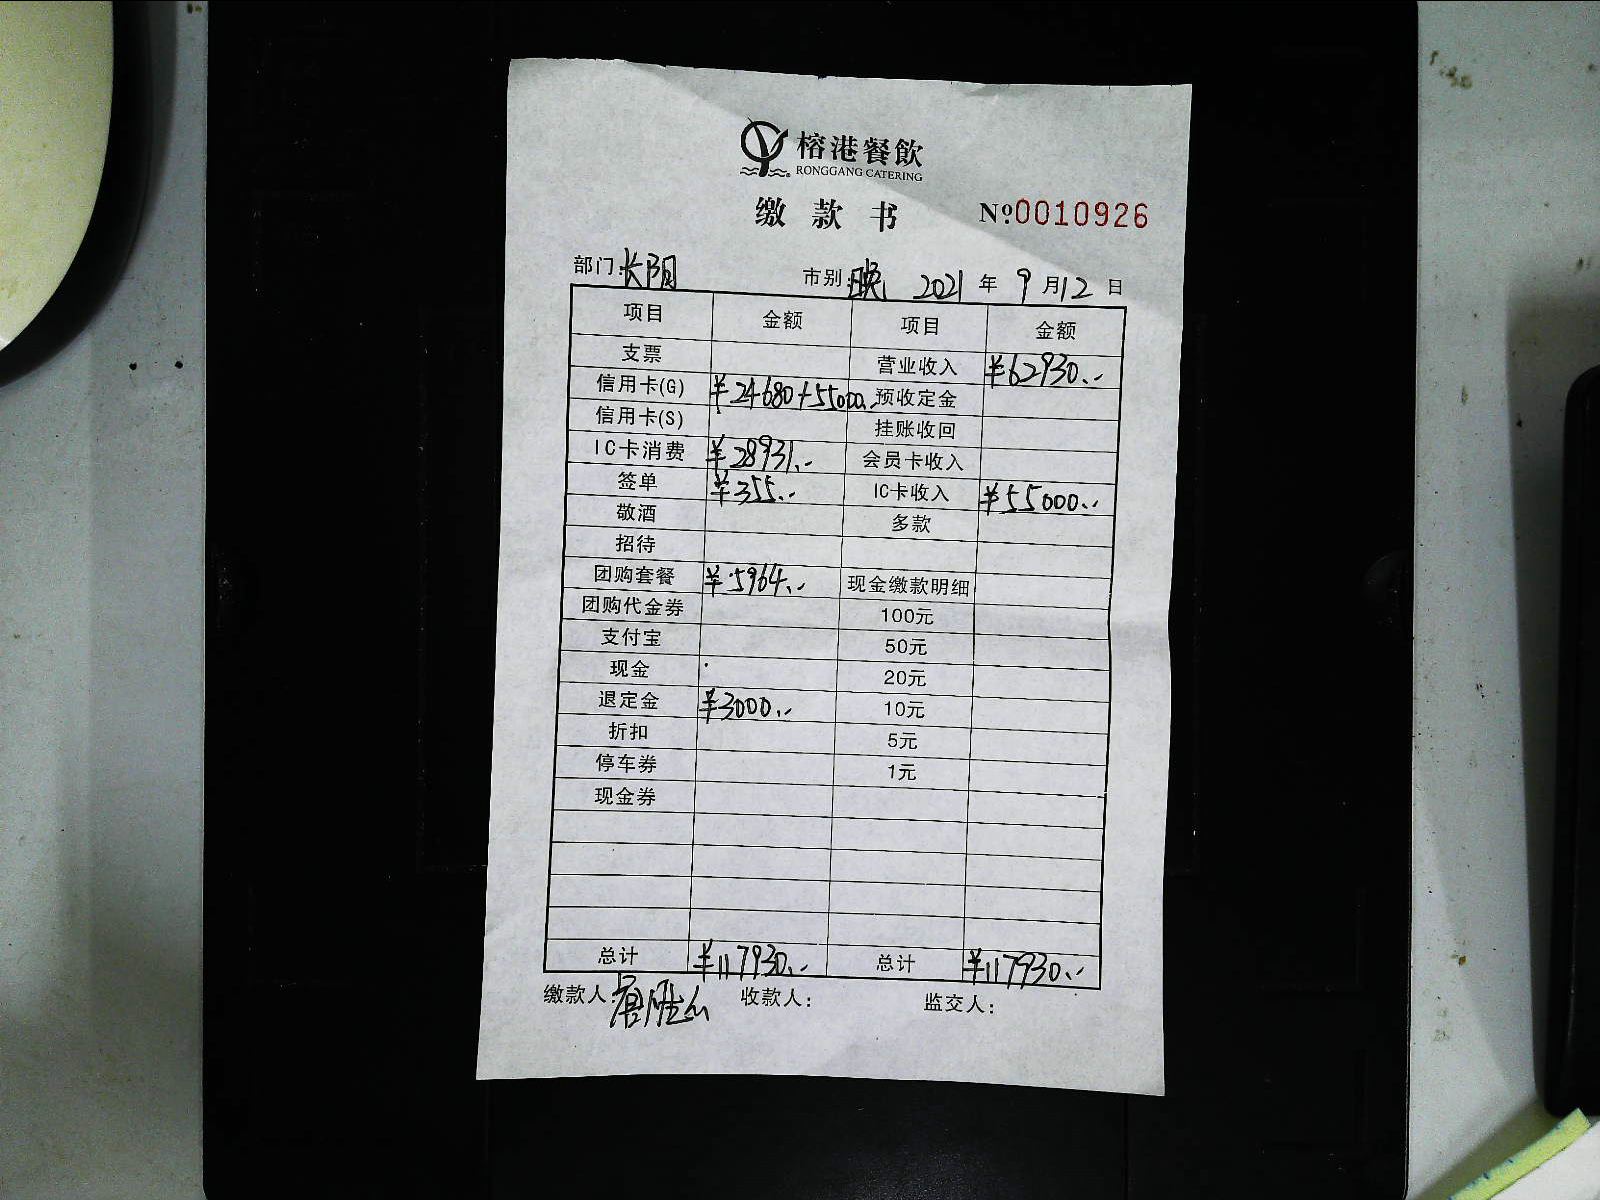 榕港餐飲
RONGGANG CATERING
缴款书 №0010926
部门:长阳 市别:晚 2021年9月12日
项目 金额 项目 金额
支票 营业收入 ¥62930.-
信用卡(G) ¥24680+55000.- 预收定金
信用卡(S) 挂账收回
IC卡消费 ¥28931.- 会员卡收入
签单 ¥355.- IC卡收入 ¥55000.-
敬酒 多款
招待
团购套餐 ¥5964.- 现金缴款明细
团购代金券 100元
支付宝 50元
现金 20元
退定金 ¥3000.- 10元
折扣 5元
停车券 1元
现金券
总计 ¥117930.- 总计 ¥117930.-
缴款人: 收款人: 监交人: